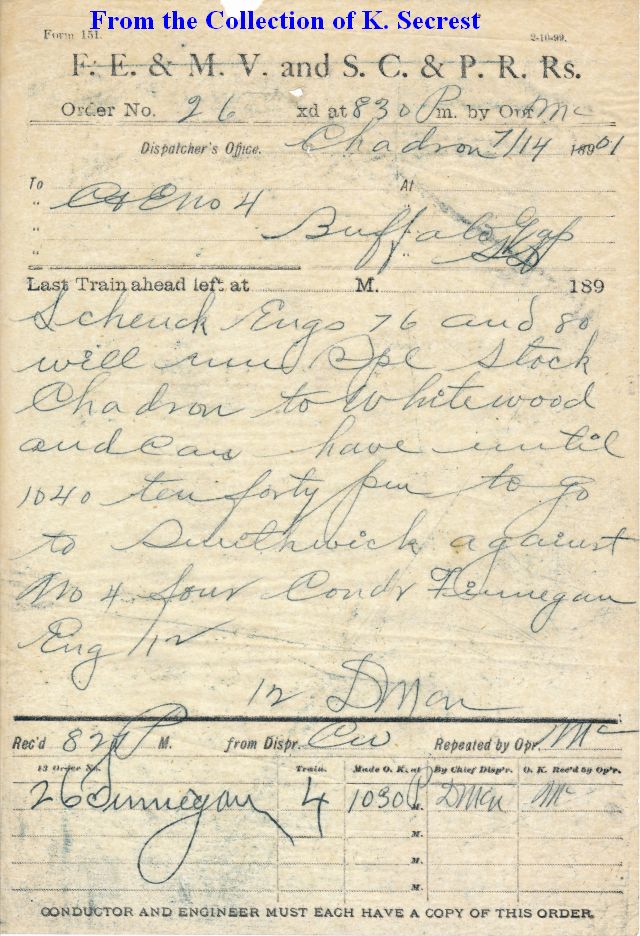 From the Collection of K. Secrest
Form 151. 2-10-99.
F. E. & M. V. and S. C. & P. R. Rs.
Order No. 26 xd at 830 Pm. by Opr Mc
Dispatcher's Office. Chadron 7/14 18901
To C&E No 4 At
" Buffalo Gap
" "
"
Last Train ahead left at M. 189
Schenck Engs 76 and 80
will run Spl Stock
Chadron to Whitewood
and can have until
1040 ten forty pm to go
to Smithwick against
No 4 four Condr Finnegan
Eng 112
12 DMcn
Rec'd 829 P M. from Dispr. Cw Repeated by Opr. Mc
13 Order No. Train. Made O. K. at By Chief Disp'r. O. K. Rec'd by Op'r.
26 Finnegan 4 1030 P M. DMcn Mc
M.
M.
M.
CONDUCTOR AND ENGINEER MUST EACH HAVE A COPY OF THIS ORDER.